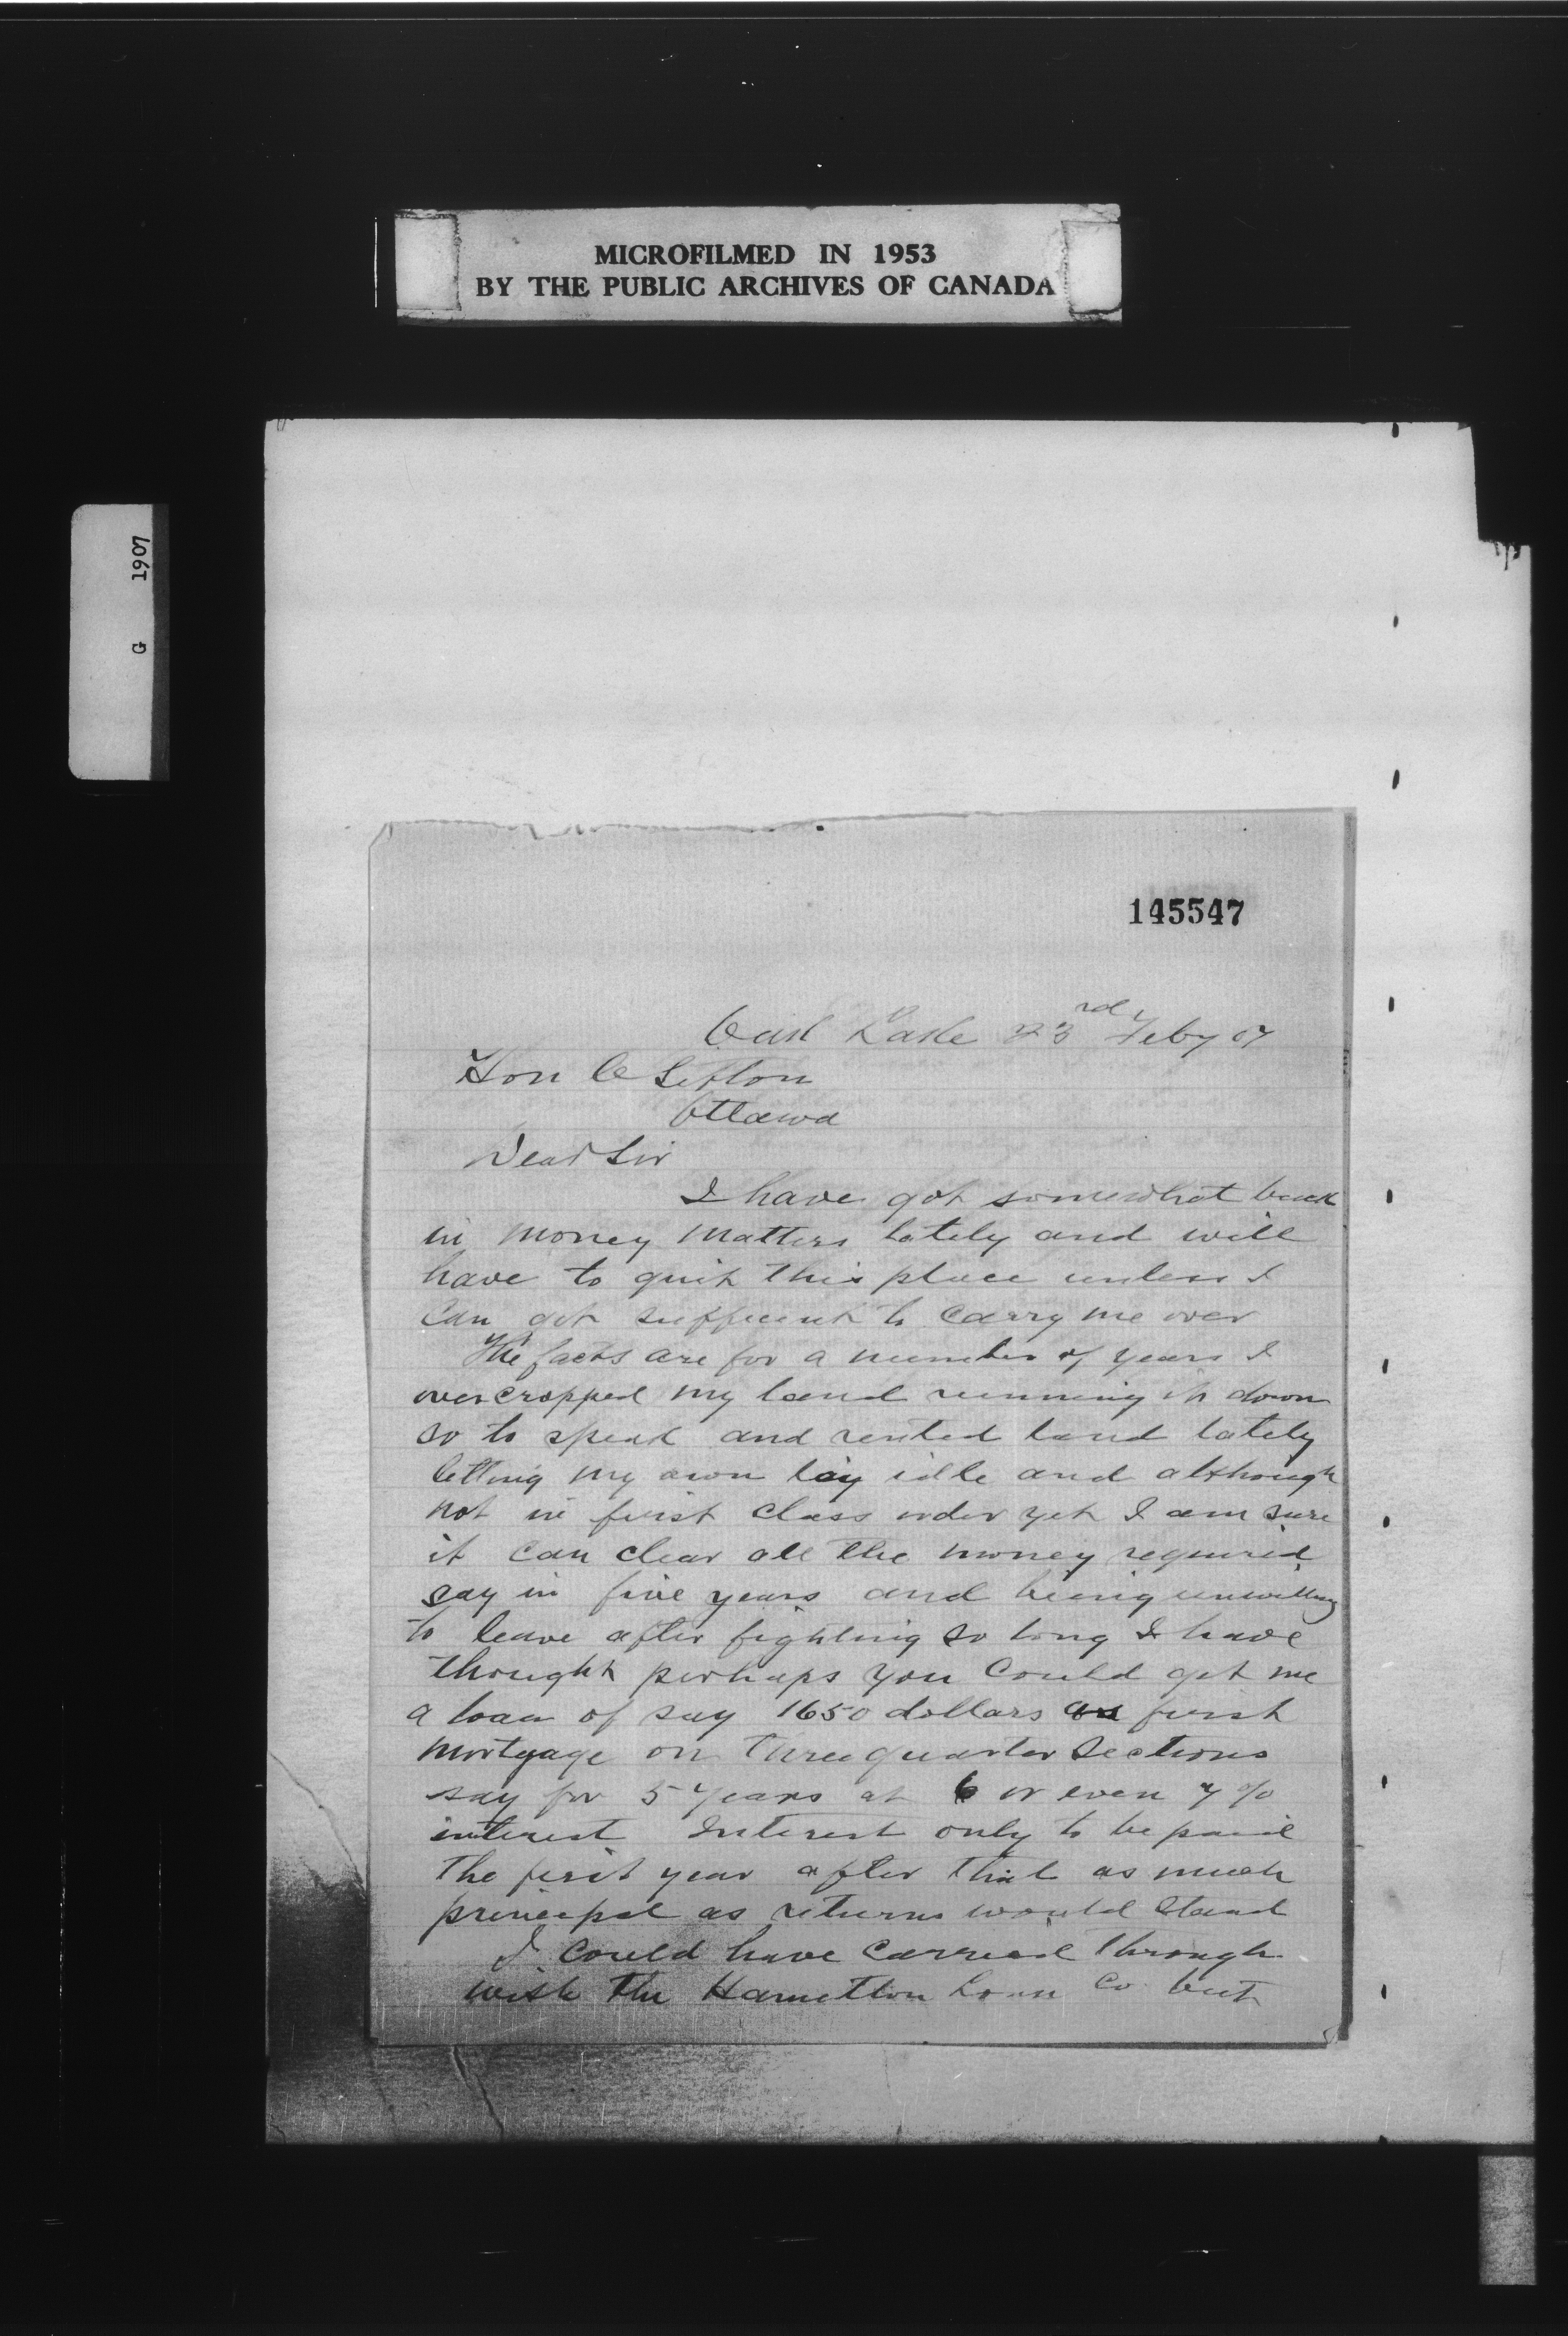 MICROFILMED IN 1953
BY THE PUBLIC ARCHIVES OF CANADA
G 1907
145547
Oak Lake 23rd Feby 07
Hon C Sifton
Ottawa
Dear Sir
I have got somewhat back
in money matters lately and will
have to quit this place unless I
can get sufficient to carry me over
The facts are for a number of years I
overcropped my land running it down
so to speak and rented land lately
letting my own lay idle and although
not in first class order yet I am sure
it can clear all the money required
say in five years and being unwilling
to leave after fighting so long I have
thought perhaps you could get me
a loan of say 1650 dollars as first
mortgage on three quarter sections
say for 5 years at 6 or even 7 %
interest Interest only to be paid
the first year after that as much
principal as returns would stand
I could have carried through
with the Hamilton Loan Co but